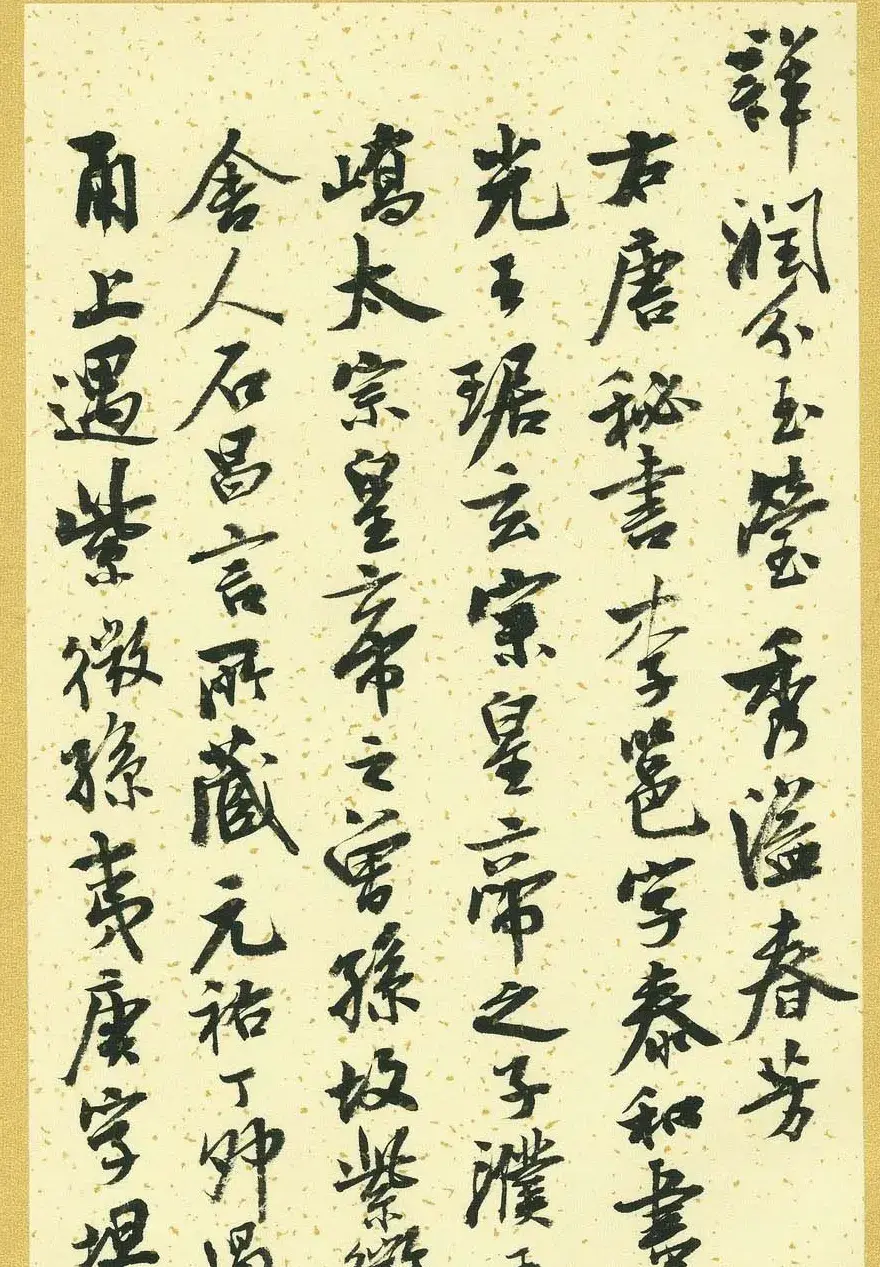 詳潤分玉瑩秀溢春芳
右唐秘書李邕字泰和書
光王琚玄宗皇帝之子濮王
嶠太宗皇帝之曾孫故紫微
舍人石昌言所藏元祐丁卯過
甬上遇紫微孫夷庚字坦